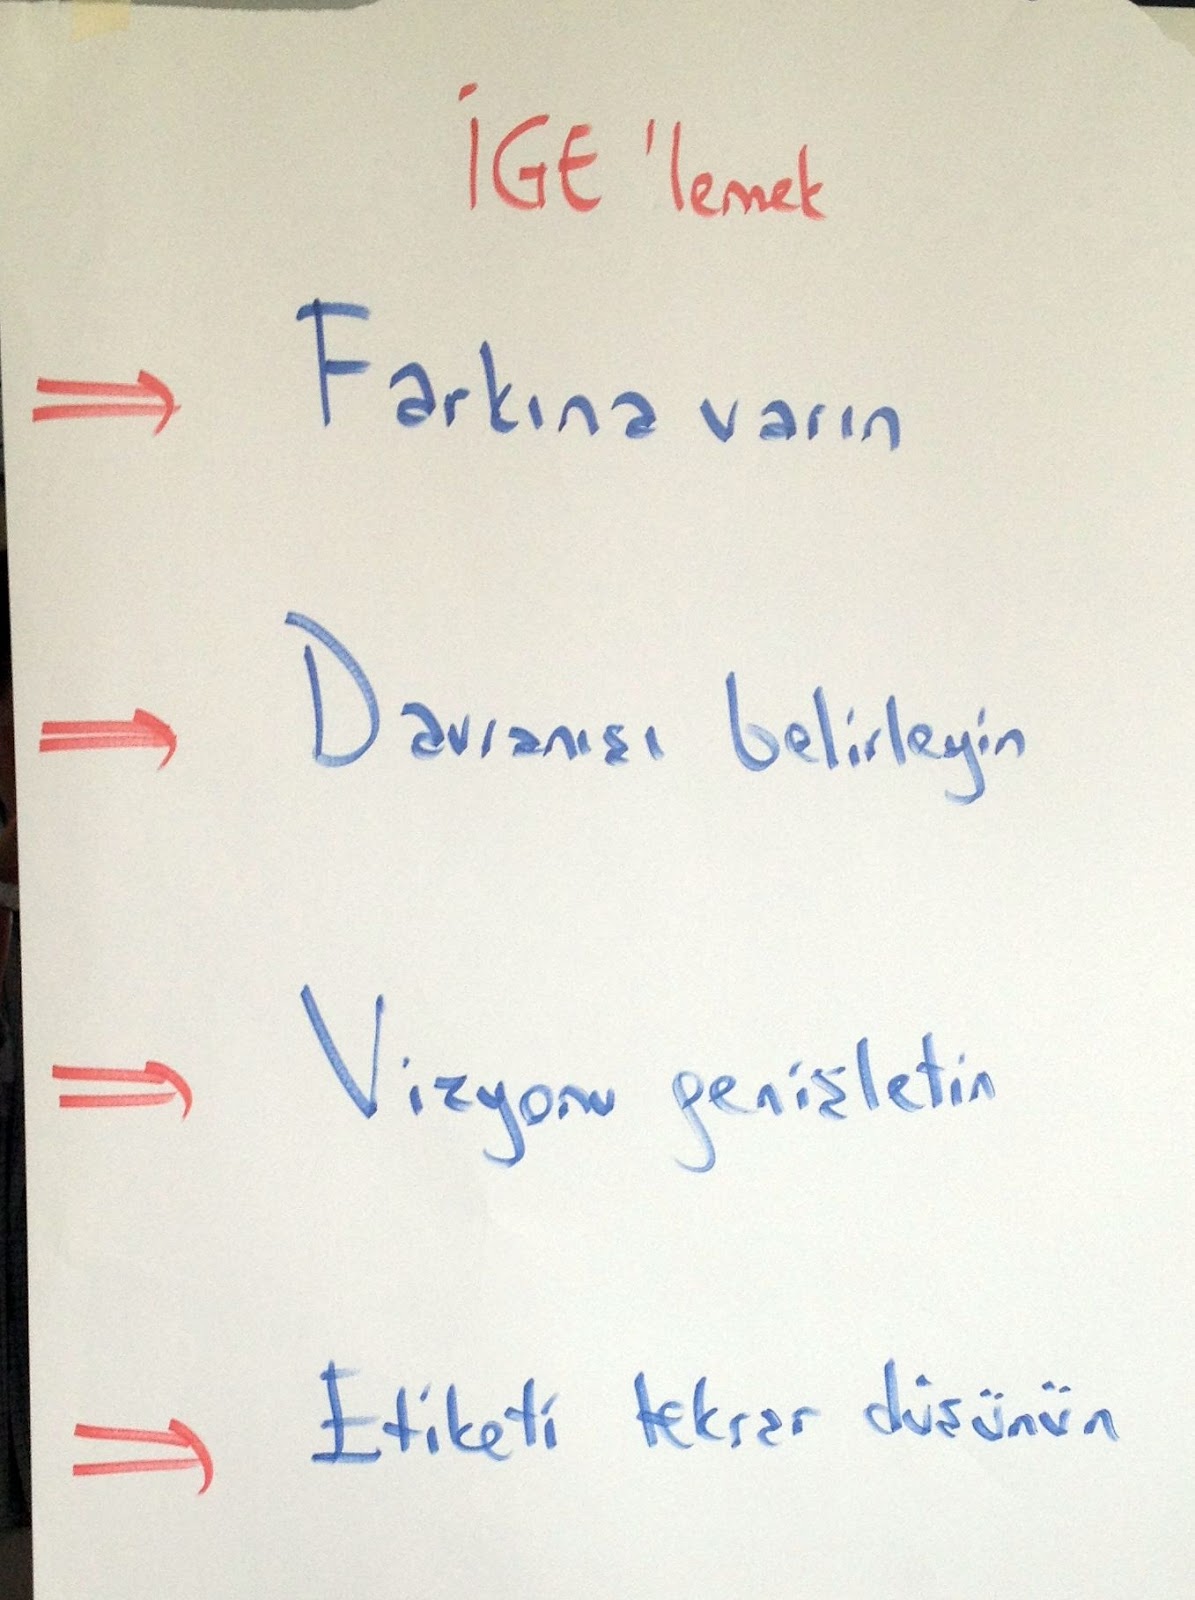 İGE 'lemek
⇒ Farkına varın
⇒ Davranışı belirleyin
⇒ Vizyonu genişletin
⇒ Etiketi tekrar düşünün